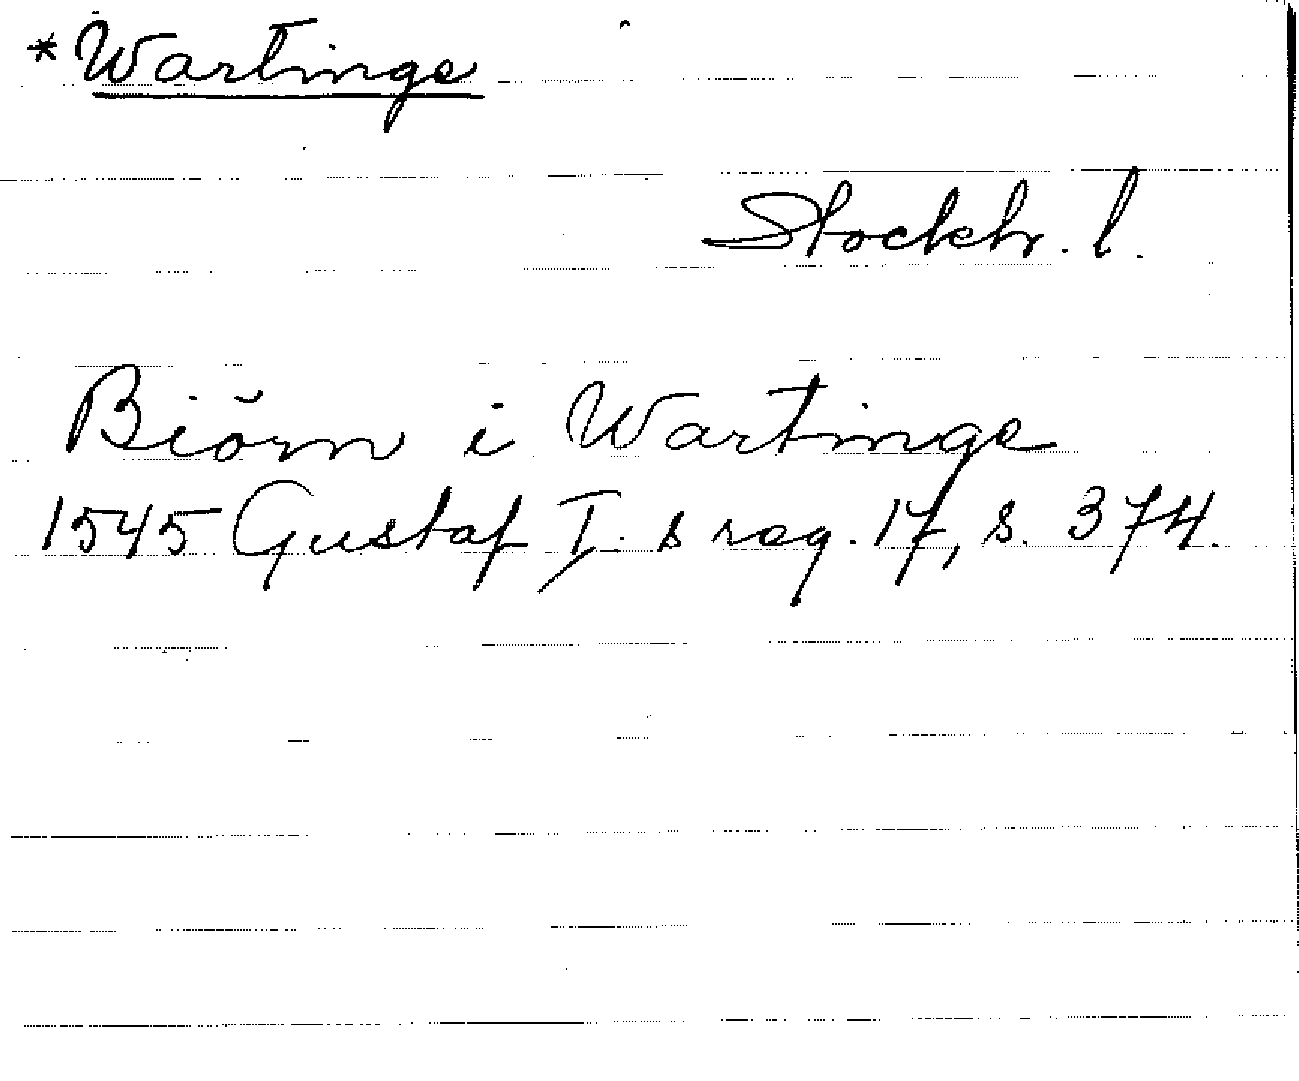 *Wartinge
Stockh. l.
Biörn i Wartinge
1545 Gustaf I. s reg. 17, s. 374.